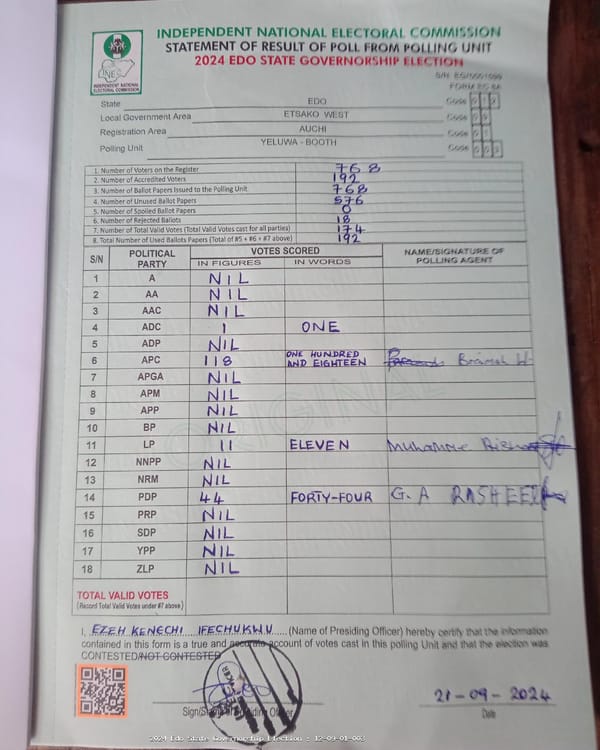 INDEPENDENT NATIONAL ELECTORAL COMMISSION
STATEMENT OF RESULT OF POLL FROM POLLING UNIT
2024 EDO STATE GOVERNORSHIP ELECTION
INDEPENDENT NATIONAL
ELECTORAL COMMISSION
FORM EC 8A
State EDO Code
Local Government Area ETSAKO WEST Code
Registration Area AUCHI Code
Polling Unit YELUWA - BOOTH Code
1. Number of Voters on the Register 768
2. Number of Accredited Voters 192
3. Number of Ballot Papers Issued to the Polling Unit 768
4. Number of Unused Ballot Papers 576
5. Number of Spoiled Ballot Papers 0
6. Number of Rejected Ballots 18
7. Number of Total Valid Votes (Total Valid Votes cast for all parties) 174
8. Total Number of Used Ballots Papers (Total of #5 + #6 + #7 above) 192
S/N POLITICAL PARTY VOTES SCORED NAME/SIGNATURE OF POLLING AGENT
IN FIGURES IN WORDS
1 A NIL
2 AA NIL
3 AAC NIL
4 ADC 1 ONE
5 ADP NIL
6 APC 118 ONE HUNDRED AND EIGHTEEN
7 APGA NIL
8 APM NIL
9 APP NIL
10 BP NIL
11 LP 11 ELEVEN
12 NNPP NIL
13 NRM NIL
14 PDP 44 FORTY-FOUR G.A RASHEED
15 PRP NIL
16 SDP NIL
17 YPP NIL
18 ZLP NIL
ORIGINAL
TOTAL VALID VOTES
(Record Total Valid Votes under #7 above)
I, EZEH KENECHI IFECHUKWU (Name of Presiding Officer) hereby certify that the information
contained in this form is a true and accurate account of votes cast in this polling Unit and that the election was
CONTESTED/NOT CONTESTED
21-09-2024
Date
2024 Edo State Governorship Election : 12-09-01-003